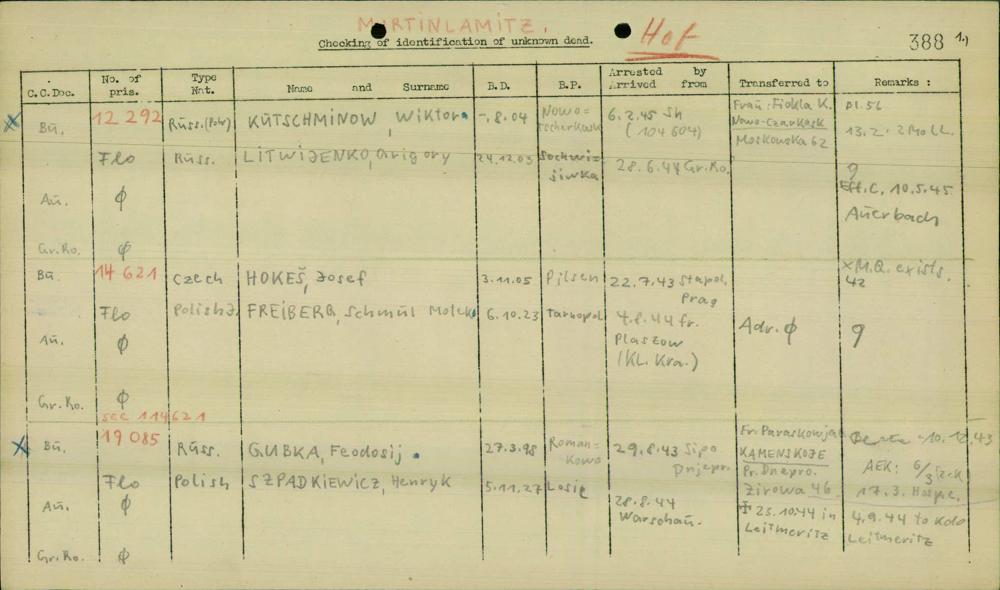 MARTINLAMITZ.
Checking of identification of unknown dead.
Hof
388 1.)
C.C.Doc. No. of pris. Type Nat. Name and Surname B.D. B.P. Arrested by Arrived from Transferred to Remarks :
Bu. 12 292 Russ. (Polr) KUTSCHMINOW, Wiktor -.8.04 Nowo= 6.2.45 Sh Frau: Fiokla K. Bl. 56
tscherkask (104 604) Nowo-Czarkask 13.2. 2 Moll.
Moskowska 62
Flo Russ. LITWIJENKO, Grigory 24.12.03 Sochwi= 28.6.44 Gr.Ro. g
siwka Eff.C. 10.5.45
Au. ϕ Auerbach
Gr.Ro. ϕ
Bu. 14 621 Czech HOKEŠ, Josef 3.11.05 Pilsen 22.7.43 Stapol. x M.Q. exists.
Prag 42
Flo Polish J. FREIBERG, Schmul Motek 6.10.23 Tarnopol 4.8.44 fr. Adr. ϕ g
Au. ϕ Plaszow
(KL. Kra.)
Gr.Ro. ϕ
see 114621
Bu. 19 085 Russ. GUBKA, Feodosij 27.3.98 Roman= 29.8.43 Sipo Fr. Paraskowja 10.12.43
kowo Dnjepr. KAMENSKOJE AEK: 6/3
Pr. Dnepro.
Flo Polish SZPADKIEWICZ, Henryk 5.11.27 Losic Zirowa 46 17.3. Hospic.
Au. ϕ 28.8.44 ✝ 25.10.44 in 4.9.44 to Kdo
Warschau. Leitmeritz Leitmeritz
Gr.Ro. ϕ